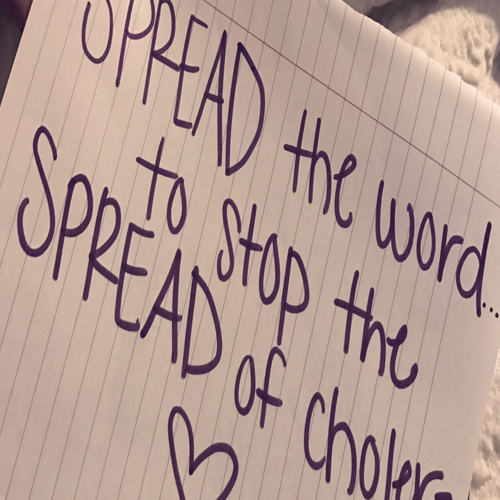 SPREAD the word...
to stop the
SPREAD of